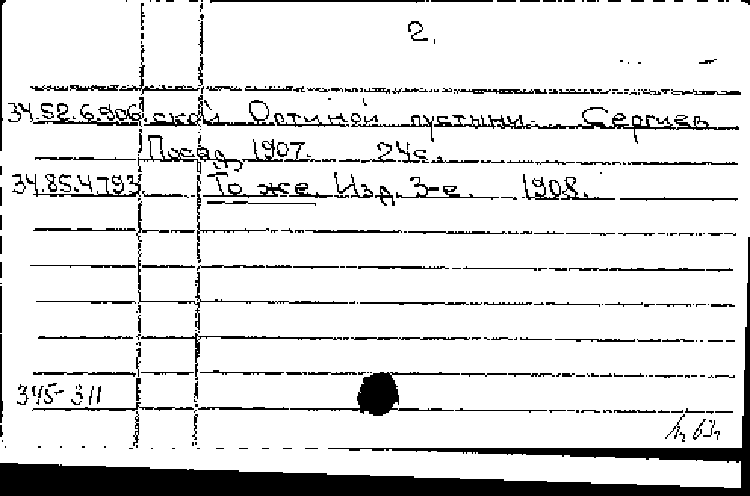 2.
34.52.6.906 ской Оптиной пустыни. Сергиев
Посад, 1907. 24с.
34.85.4793 То же. Изд. 3-е. 1908.
345-311